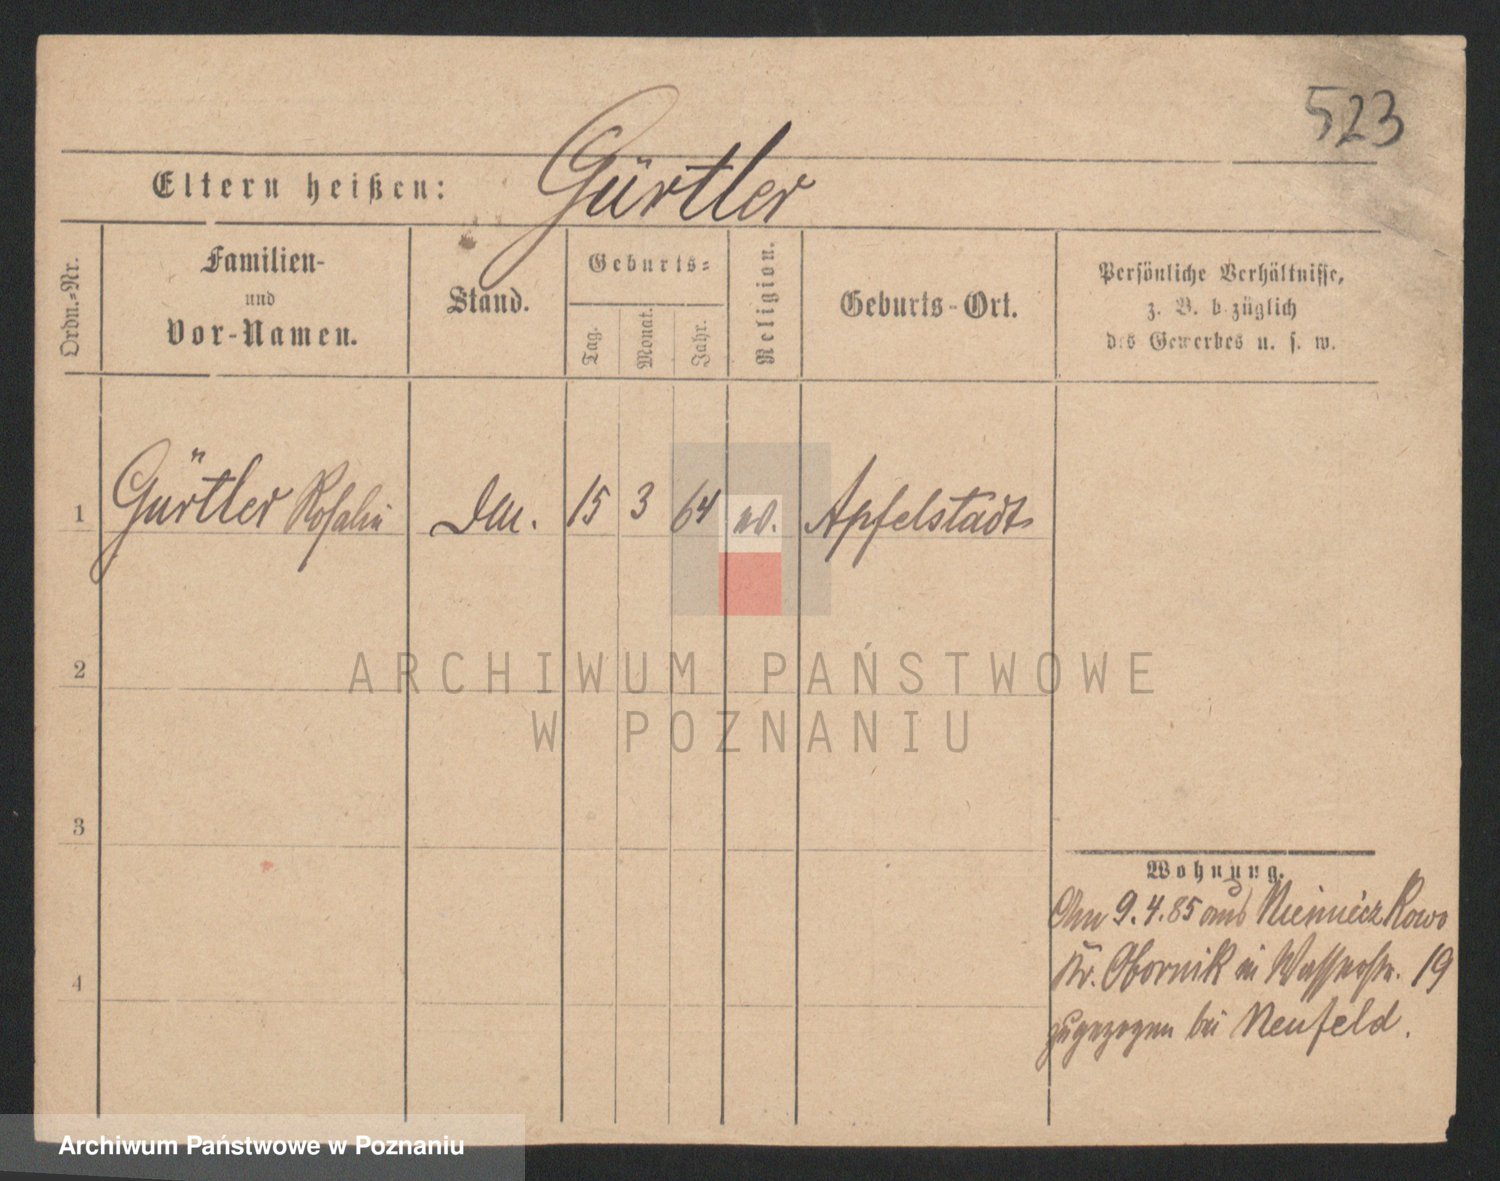 523
Eltern heißen: Gürtler
Ordn.-Nr.
Familien-
und
Vor-Namen.
Stand.
Geburts-
Tag.
Monat.
Jahr.
Religion.
Geburts-Ort.
Persönliche Verhältnisse,
z. B. bezüglich
des Gewerbes u. s. w.
1 Gürtler Rosalie 15 3 64 Apfelstadt
2
3
4
Wohnung.
Am 9.4.85 aus Niemieczkowo
Kr. Obornik in Wasserstr. 19
zugezogen bei Neufeld.
ARCHIWUM PAŃSTWOWE
W POZNANIU
Archiwum Państwowe w Poznaniu